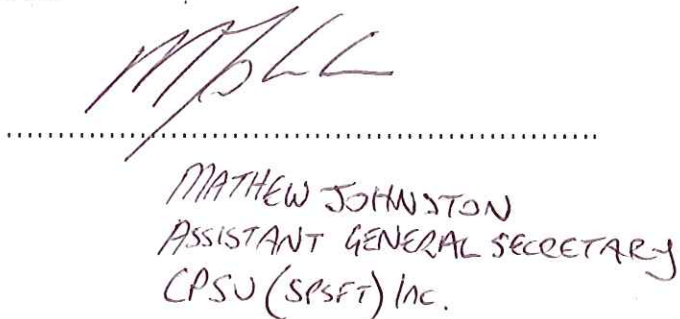 MATHEW JOHNSTON
ASSISTANT GENERAL SECRETARY
CPSU (SPSFT) Inc.